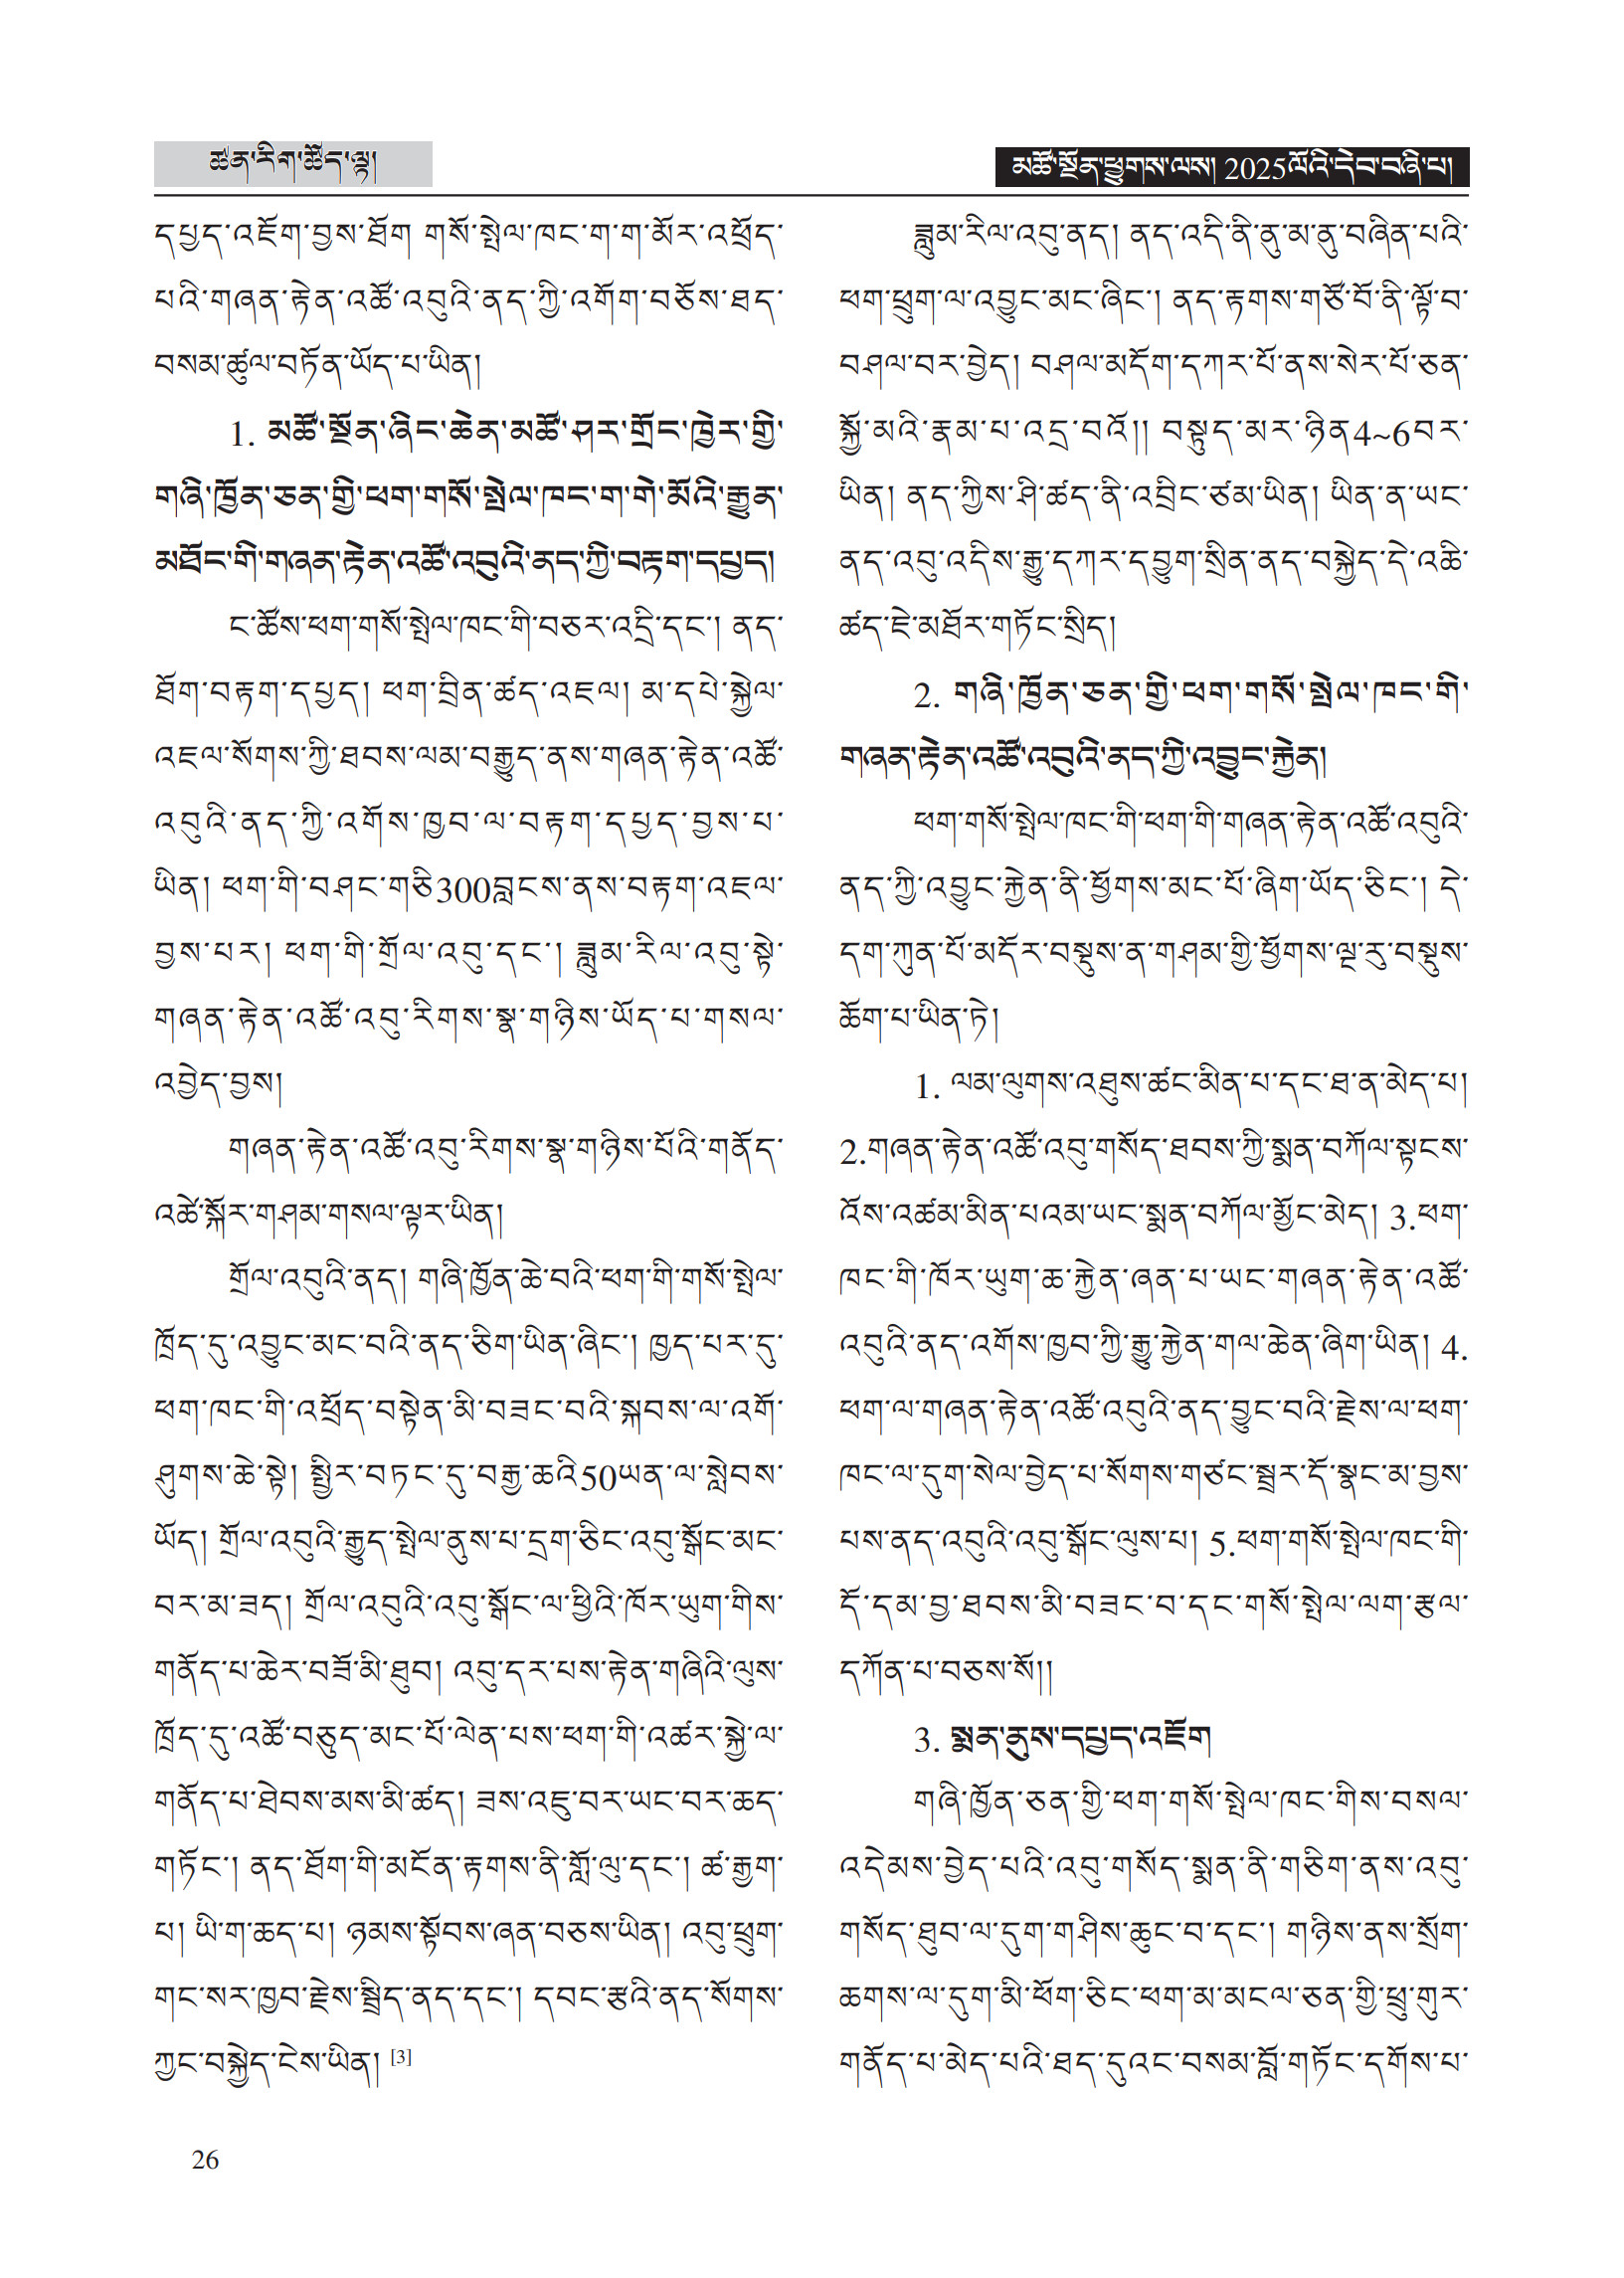 ཚན་རིག་ཚོད་ལྟ།
མཚོ་སྔོན་ཕྱུགས་ལས། 2025ལོའི་དེབ་བཞི་པ།
དཔྱད་འཇོག་བྱས་ཐོག གསོ་སྤེལ་ཁང་ག་ག་མོར་འཕྲོད་
པའི་གཞན་རྟེན་འཚོ་འབུའི་ནད་ཀྱི་འགོག་བཅོས་ཐད་
བསམ་ཚུལ་བཏོན་ཡོད་པ་ཡིན།
1. མཚོ་སྔོན་ཞིང་ཆེན་མཚོ་ཤར་གྲོང་ཁྱེར་གྱི་
གཞི་ཁྱོན་ཅན་གྱི་ཕག་གསོ་སྤེལ་ཁང་ག་གེ་མོའི་རྒྱུན་
མཐོང་གི་གཞན་རྟེན་འཚོ་འབུའི་ནད་ཀྱི་བརྟག་དཔྱད།
ང་ཚོས་ཕག་གསོ་སྤེལ་ཁང་གི་བཅར་འདྲི་དང་། ནད་
ཐོག་བརྟག་དཔྱད། ཕག་བྲིན་ཚད་འཇལ། མ་དཔེ་སྐྱེལ་
འཇལ་སོགས་ཀྱི་ཐབས་ལམ་བརྒྱུད་ནས་གཞན་རྟེན་འཚོ་
འབུའི་ནད་ཀྱི་འགོས་ཁྱབ་ལ་བརྟག་དཔྱད་བྱས་པ་
ཡིན། ཕག་གི་བཤང་གཅི300བླངས་ནས་བརྟག་འཇལ་
བྱས་པར། ཕག་གི་གྲོལ་འབུ་དང་། ཟླུམ་རིལ་འབུ་སྟེ་
གཞན་རྟེན་འཚོ་འབུ་རིགས་སྣ་གཉིས་ཡོད་པ་གསལ་
འབྱེད་བྱས།
གཞན་རྟེན་འཚོ་འབུ་རིགས་སྣ་གཉིས་པོའི་གནོད་
འཚེ་སྐོར་གཤམ་གསལ་ལྟར་ཡིན།
གྲོལ་འབུའི་ནད། གཞི་ཁྱོན་ཆེ་བའི་ཕག་གི་གསོ་སྤེལ་
ཁྲོད་དུ་འབྱུང་མང་བའི་ནད་ཅིག་ཡིན་ཞིང་། ཁྱད་པར་དུ་
ཕག་ཁང་གི་འཕྲོད་བསྟེན་མི་བཟང་བའི་སྐབས་ལ་འགོ་
ཤུགས་ཆེ་སྟེ། སྤྱིར་བཏང་དུ་བརྒྱ་ཆའི50ཡན་ལ་སླེབས་
ཡོད། གྲོལ་འབུའི་རྒྱུད་སྤེལ་ནུས་པ་དྲག་ཅིང་འབུ་སྒོང་མང་
བར་མ་ཟད། གྲོལ་འབུའི་འབུ་སྒོང་ལ་ཕྱིའི་ཁོར་ཡུག་གིས་
གནོད་པ་ཆེར་བཟོ་མི་ཐུབ། འབུ་དར་པས་རྟེན་གཞིའི་ལུས་
ཁྲོད་དུ་འཚོ་བཅུད་མང་པོ་ལེན་པས་ཕག་གི་འཚར་སྐྱེ་ལ་
གནོད་པ་ཐེབས་མས་མི་ཚད། ཟས་འཇུ་བར་ཡང་བར་ཆད་
གཏོང་། ནད་ཐོག་གི་མངོན་རྟགས་ནི་གློ་ལུ་དང་། ཚ་རྒྱག་
པ། ཡི་ག་ཆད་པ། ཉམས་སྟོབས་ཞན་བཅས་ཡིན། འབུ་ཕྲུག་
གང་སར་ཁྱབ་རྗེས་སྦྲིད་ནད་དང་། དབང་རྩའི་ནད་སོགས་
ཀྱང་བསྐྱེད་ངེས་ཡིན། [3]
ཟླུམ་རིལ་འབུ་ནད། ནད་འདི་ནི་ནུ་མ་ནུ་བཞིན་པའི་
ཕག་ཕྲུག་ལ་འབྱུང་མང་ཞིང་། ནད་རྟགས་གཙོ་བོ་ནི་ལྟོ་བ་
བཤལ་བར་བྱེད། བཤལ་མདོག་དཀར་པོ་ནས་སེར་པོ་ཅན་
སྐྱོ་མའི་རྣམ་པ་འདྲ་བའོ།། བསྟུད་མར་ཉིན4~6བར་
ཡིན། ནད་ཀྱིས་ཤི་ཚད་ནི་འབྲིང་ཙམ་ཡིན། ཡིན་ན་ཡང་
ནད་འབུ་འདིས་རྒྱུ་དཀར་དབྱུག་སྲིན་ནད་བསྐྱེད་དེ་འཆི་
ཚད་ཇེ་མཐོར་གཏོང་སྲིད།
2. གཞི་ཁྱོན་ཅན་གྱི་ཕག་གསོ་སྤེལ་ཁང་གི་
གཞན་རྟེན་འཚོ་འབུའི་ནད་ཀྱི་འབྱུང་རྐྱེན།
ཕག་གསོ་སྤེལ་ཁང་གི་ཕག་གི་གཞན་རྟེན་འཚོ་འབུའི་
ནད་ཀྱི་འབྱུང་རྐྱེན་ནི་ཕྱོགས་མང་པོ་ཞིག་ཡོད་ཅིང་། དེ་
དག་ཀུན་པོ་མདོར་བསྡུས་ན་གཤམ་གྱི་ཕྱོགས་ལྔ་རུ་བསྡུས་
ཆོག་པ་ཡིན་ཏེ།
1. ལམ་ལུགས་འཐུས་ཚང་མིན་པ་དང་ཐ་ན་མེད་པ།
2.གཞན་རྟེན་འཚོ་འབུ་གསོད་ཐབས་ཀྱི་སྨན་བཀོལ་སྟངས་
འོས་འཚམ་མིན་པའམ་ཡང་སྨན་བཀོལ་མྱོང་མེད། 3.ཕག་
ཁང་གི་ཁོར་ཡུག་ཆ་རྐྱེན་ཞན་པ་ཡང་གཞན་རྟེན་འཚོ་
འབུའི་ནད་འགོས་ཁྱབ་ཀྱི་རྒྱུ་རྐྱེན་གལ་ཆེན་ཞིག་ཡིན། 4.
ཕག་ལ་གཞན་རྟེན་འཚོ་འབུའི་ནད་བྱུང་བའི་རྗེས་ལ་ཕག་
ཁང་ལ་དུག་སེལ་བྱེད་པ་སོགས་གཙང་སྦྲར་དོ་སྣང་མ་བྱས་
པས་ནད་འབུའི་འབུ་སྒོང་ལུས་པ། 5.ཕག་གསོ་སྤེལ་ཁང་གི་
དོ་དམ་བྱ་ཐབས་མི་བཟང་བ་དང་གསོ་སྤེལ་ལག་རྩལ་
དཀོན་པ་བཅས་སོ།།
3. སྨན་ནུས་དཔྱད་འཇོག
གཞི་ཁྱོན་ཅན་གྱི་ཕག་གསོ་སྤེལ་ཁང་གིས་བསལ་
འདེམས་བྱེད་པའི་འབུ་གསོད་སྨན་ནི་གཅིག་ནས་འབུ་
གསོད་ཐུབ་ལ་དུག་གཤིས་ཆུང་བ་དང་། གཉིས་ནས་སྲོག་
ཆགས་ལ་དུག་མི་ཕོག་ཅིང་ཕག་མ་མངལ་ཅན་གྱི་ཕྲུ་གུར་
གནོད་པ་མེད་པའི་ཐད་དུའང་བསམ་བློ་གཏོང་དགོས་པ་
26